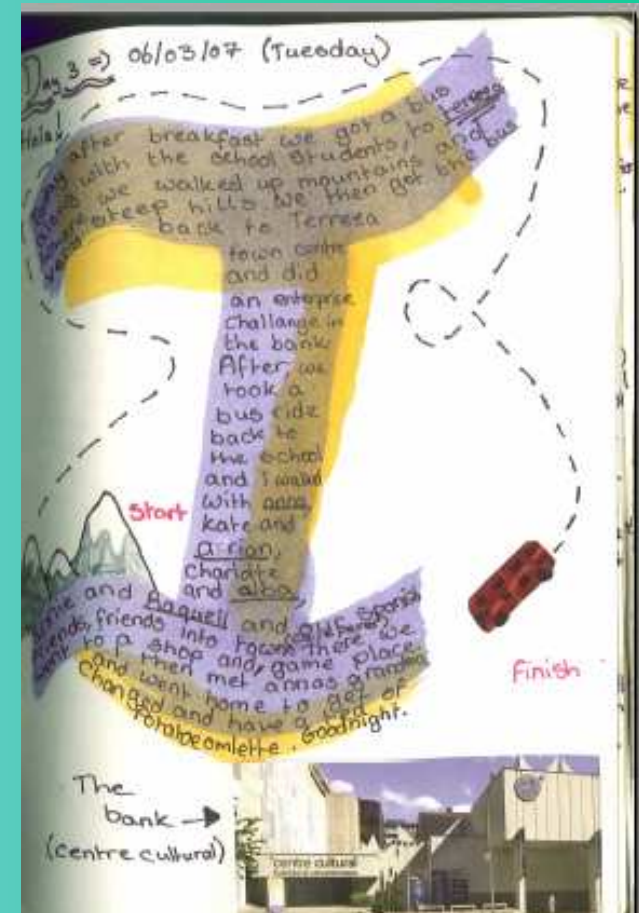 Day 3 => 06/03/07 (Tuesday)
Hola!
after breakfast we got a bus
with the school students, to terresa
we walked up mountains and
steep hills. we then got the bus
back to Terresa
town centre
and did
an enterprise
Challange in
the bank
After, we
took a
bus ride
back to
the school
and I walked
with anna,
kate and
arian,
charlotte
and alba,
and Raquell and
friends, friends into town. There we
went to a shop and, game place.
I then met annas grandma
and went home to get
changed and have a tea of
Potatoe omlette. Goodnight.
Start
Finish
The
bank →
(centre cultural)
centre cultural